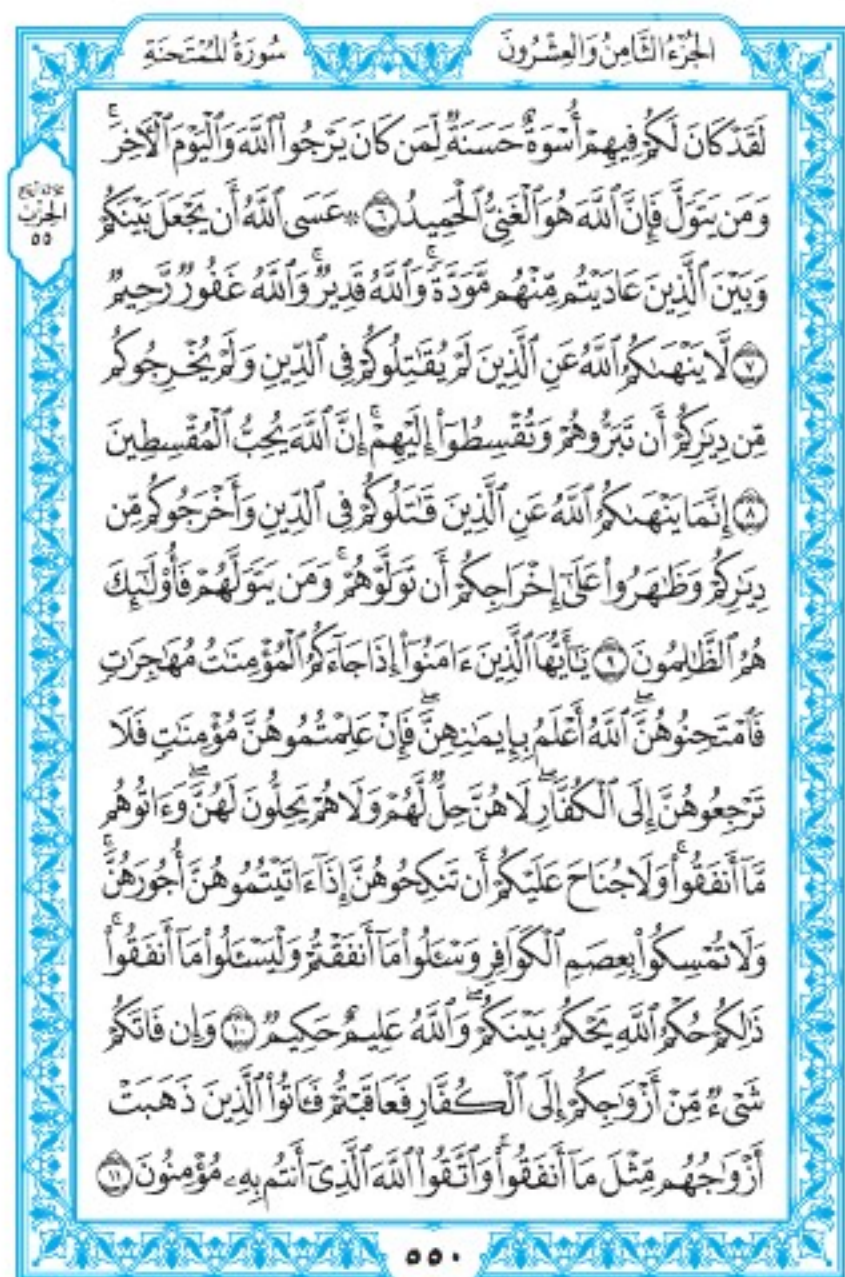 الجُزْءُ الثَّامِنُ وَالعِشْرُونَ
سُورَةُ المُمْتَحنَةِ
لَقَدْ كَانَ لَكُمْ فِيهِمْ أُسْوَةٌ حَسَنَةٌ لِّمَن كَانَ يَرْجُواْ ٱللَّهَ وَٱلْيَوْمَ ٱلْأٓخِرَۚ
وَمَن يَتَوَلَّ فَإِنَّ ٱللَّهَ هُوَ ٱلْغَنِىُّ ٱلْحَمِيدُ ٦ ۞ عَسَى ٱللَّهُ أَن يَجْعَلَ بَيْنَكُمْ
وَبَيْنَ ٱلَّذِينَ عَادَيْتُم مِّنْهُم مَّوَدَّةًۚ وَٱللَّهُ قَدِيرٌۚ وَٱللَّهُ غَفُورٌ رَّحِيمٌ
٧ لَّا يَنْهَىٰكُمُ ٱللَّهُ عَنِ ٱلَّذِينَ لَمْ يُقَٰتِلُوكُمْ فِى ٱلدِّينِ وَلَمْ يُخْرِجُوكُم
مِّن دِيَٰرِكُمْ أَن تَبَرُّوهُمْ وَتُقْسِطُوٓاْ إِلَيْهِمْۚ إِنَّ ٱللَّهَ يُحِبُّ ٱلْمُقْسِطِينَ
٨ إِنَّمَا يَنْهَىٰكُمُ ٱللَّهُ عَنِ ٱلَّذِينَ قَٰتَلُوكُمْ فِى ٱلدِّينِ وَأَخْرَجُوكُم مِّن
دِيَٰرِكُمْ وَظَٰهَرُواْ عَلَىٰٓ إِخْرَاجِكُمْ أَن تَوَلَّوْهُمْۚ وَمَن يَتَوَلَّهُمْ فَأُوْلَٰٓئِكَ
هُمُ ٱلظَّٰلِمُونَ ٩ يَٰٓأَيُّهَا ٱلَّذِينَ ءَامَنُوٓاْ إِذَا جَآءَكُمُ ٱلْمُؤْمِنَٰتُ مُهَٰجِرَٰتٍ
فَٱمْتَحِنُوهُنَّۖ ٱللَّهُ أَعْلَمُ بِإِيمَٰنِهِنَّۖ فَإِنْ عَلِمْتُمُوهُنَّ مُؤْمِنَٰتٍ فَلَا
تَرْجِعُوهُنَّ إِلَى ٱلْكُفَّارِۖ لَا هُنَّ حِلٌّ لَّهُمْ وَلَا هُمْ يَحِلُّونَ لَهُنَّۖ وَءَاتُوهُم
مَّآ أَنفَقُواْۚ وَلَا جُنَاحَ عَلَيْكُمْ أَن تَنكِحُوهُنَّ إِذَآ ءَاتَيْتُمُوهُنَّ أُجُورَهُنَّۚ
وَلَا تُمْسِكُواْ بِعِصَمِ ٱلْكَوَافِرِ وَسْـَٔلُواْ مَآ أَنفَقْتُمْ وَلْيَسْـَٔلُواْ مَآ أَنفَقُواْۚ
ذَٰلِكُمْ حُكْمُ ٱللَّهِ يَحْكُمُ بَيْنَكُمْۖ وَٱللَّهُ عَلِيمٌ حَكِيمٌ ١٠ وَإِن فَاتَكُمْ
شَىْءٌ مِّنْ أَزْوَٰجِكُمْ إِلَى ٱلْكُفَّارِ فَعَاقَبْتُمْ فَـَٔاتُواْ ٱلَّذِينَ ذَهَبَتْ
أَزْوَٰجُهُم مِّثْلَ مَآ أَنفَقُواْۚ وَٱتَّقُواْ ٱللَّهَ ٱلَّذِىٓ أَنتُم بِهِۦ مُؤْمِنُونَ ١١
الحِزْبُ
٥٥
٥٥٠